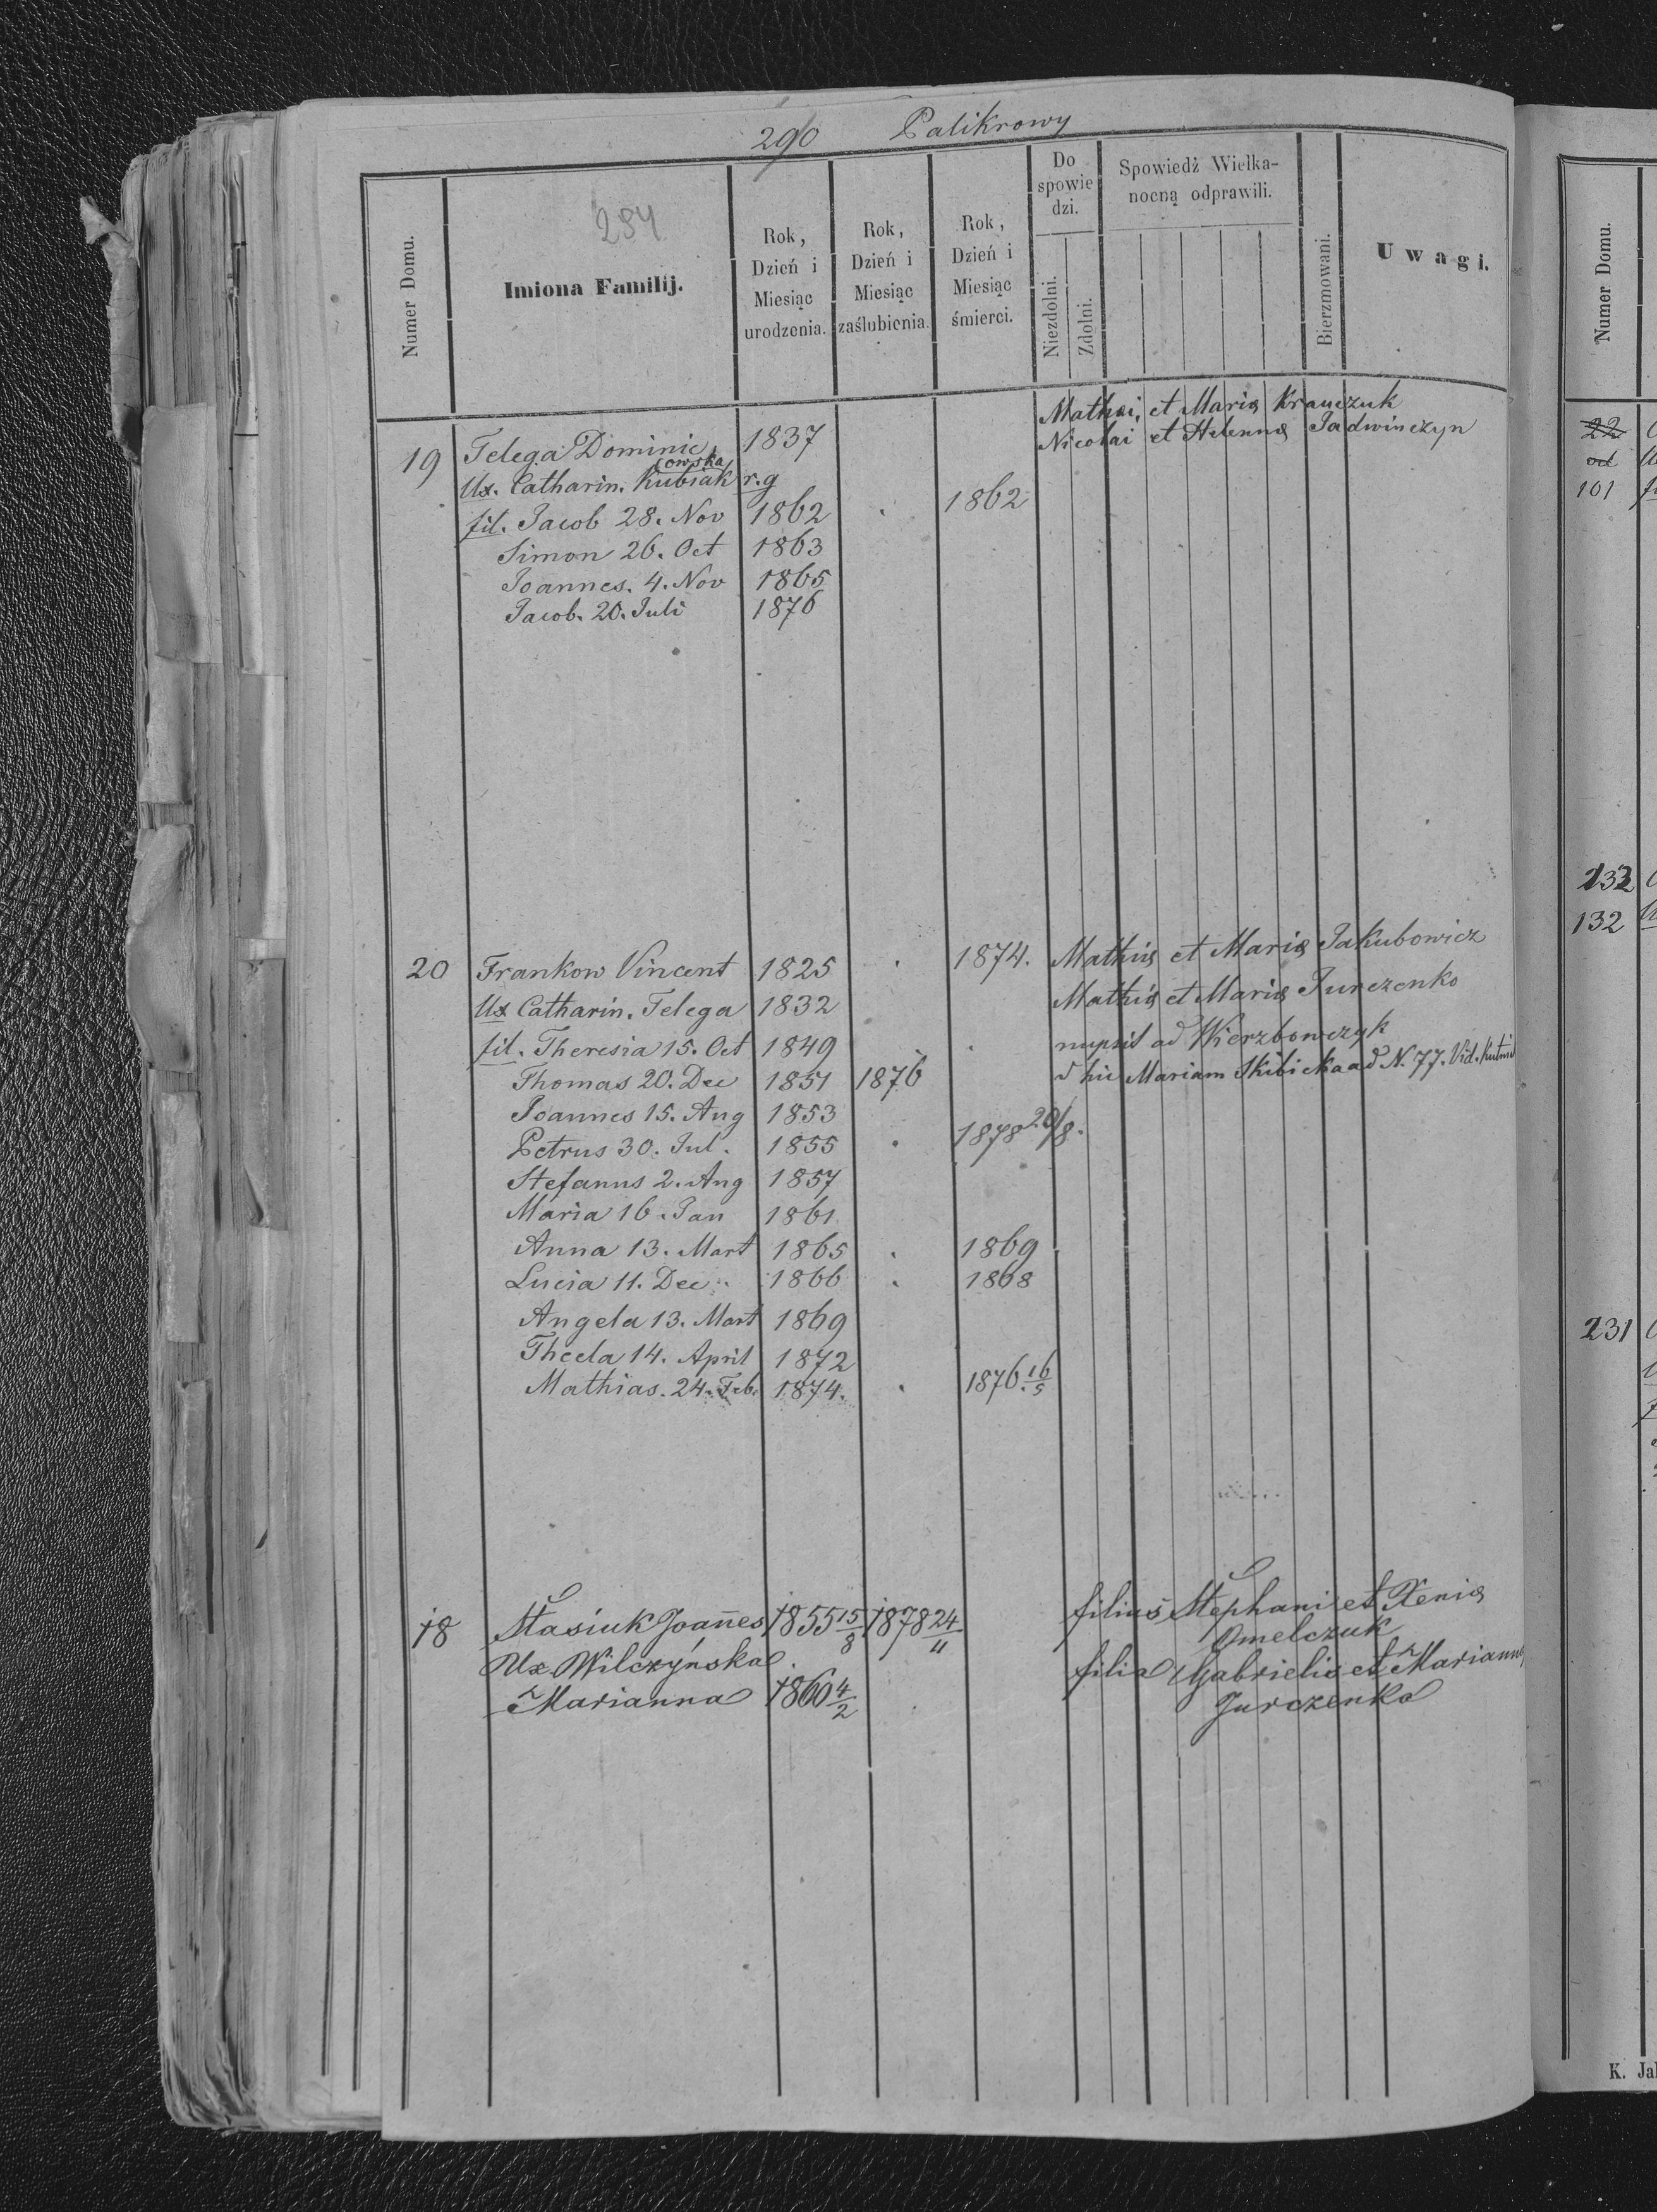 290 Palikrowy
284
Numer Domu.
Imiona Familij.
Rok, Dzień i Miesiąc urodzenia.
Rok, Dzień i Miesiąc zaślubienia.
Rok, Dzień i Miesiąc śmierci.
Do spowiedzi.
Niezdolni.
Zdolni.
Spowiedź Wielka-
nocną odprawili.
Bierzmowani.
Uwagi.
19 Telega Dominic 1837 Mathaei et Mariæ Krauczuk
owska
Ux. Catharin. Kubiak r.g Nicolai et Helennæ Jadwinczyn
fil. Jacob 28. Nov 1862 . 1862
Simon 26. Oct 1863
Joannes. 4. Nov 1865
Jacob. 20. Juli 1876
20 Frankow Vincent 1825 . 1874. Mathiæ et Mariæ Jakubowicz
Ux Catharin. Telega 1832 Mathiæ et Mariæ Jurczenko
fil. Theresia 15. Oct 1849 . nupsit ad Wierzbowczyk
Thomas 20. Dec 1851 1876 d hic Mariam Skibicka ad N. 77. Vid.
Joannes 15. Aug 1853
Petrus 30. Jul. 1855 . 1878 20/8.
Stefanus 2. Aug 1857
Maria 16. Jan 1861
Anna 13. Mart 1865 . 1869
Lucia 11. Dec. 1866 . 1868
Angela 13. Mart 1869
Thecla 14. April 1872
Mathias. 24. Feb. 1874. . 1876. 16/5
18 Stasiuk Joan̄es 1855 15/8 1878 24/11 filius Stephani et Xeniæ
Omelczuk
Ux Wilczyńska filia Gabrielis et Mariannæ
Marianna 1860 4/2 Jurczenka
Numer Domu.
22
od
101
133
132
231
K. Ja